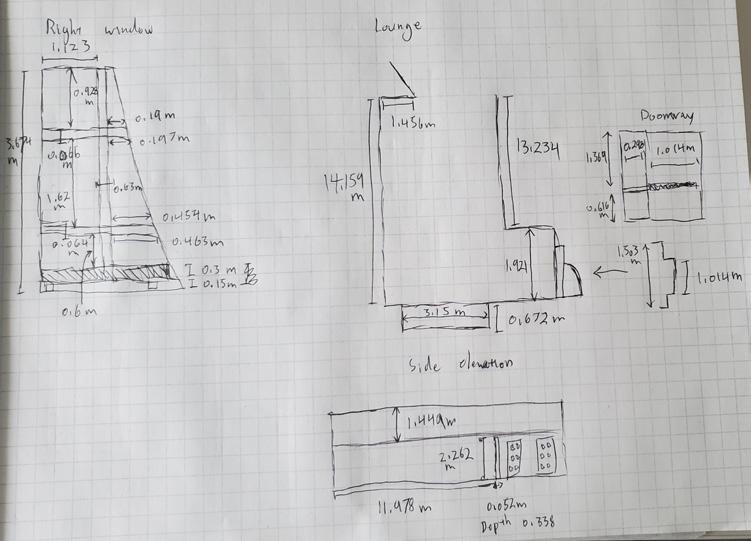 Right window
1.123
0.928
m
3.674
m
0.19m
0.197m
0.066
m
0.63m
1.62
m
0.454m
0.064
m
0.463m
0.3 m
0.15m
0.6m
Lounge
1.456m
14.159
m
13.234
1.921
3.15m
0.672m
Doorway
1.369
0.292
1.014m
0.616
m
1.503
m
1.014m
Side elevation
1.449m
2.262
m
11.978m
0.052m
Depth 0.338